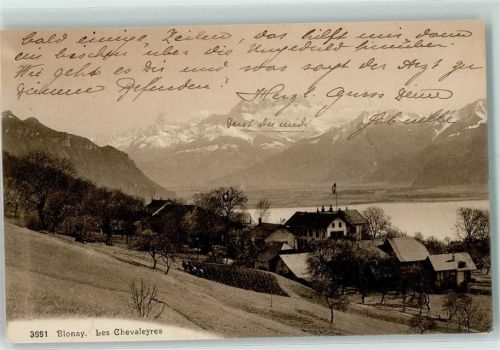 bald einige Zeilen, das hilft mir dann
ein bischen über die Ungeduld hinüber.
Wie geht es dir und was sagt der Arzt zu
deinem Befinden? Herzl. Gruss Deine
Dent du midi
3991 Blonay. Les Chevaleyres